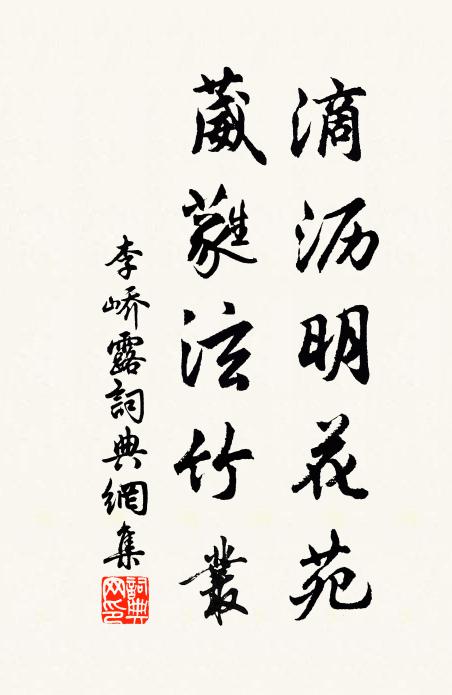 滴沥明花苑
葳蕤泫竹叢
李嶠露詞典網集
詞典網印